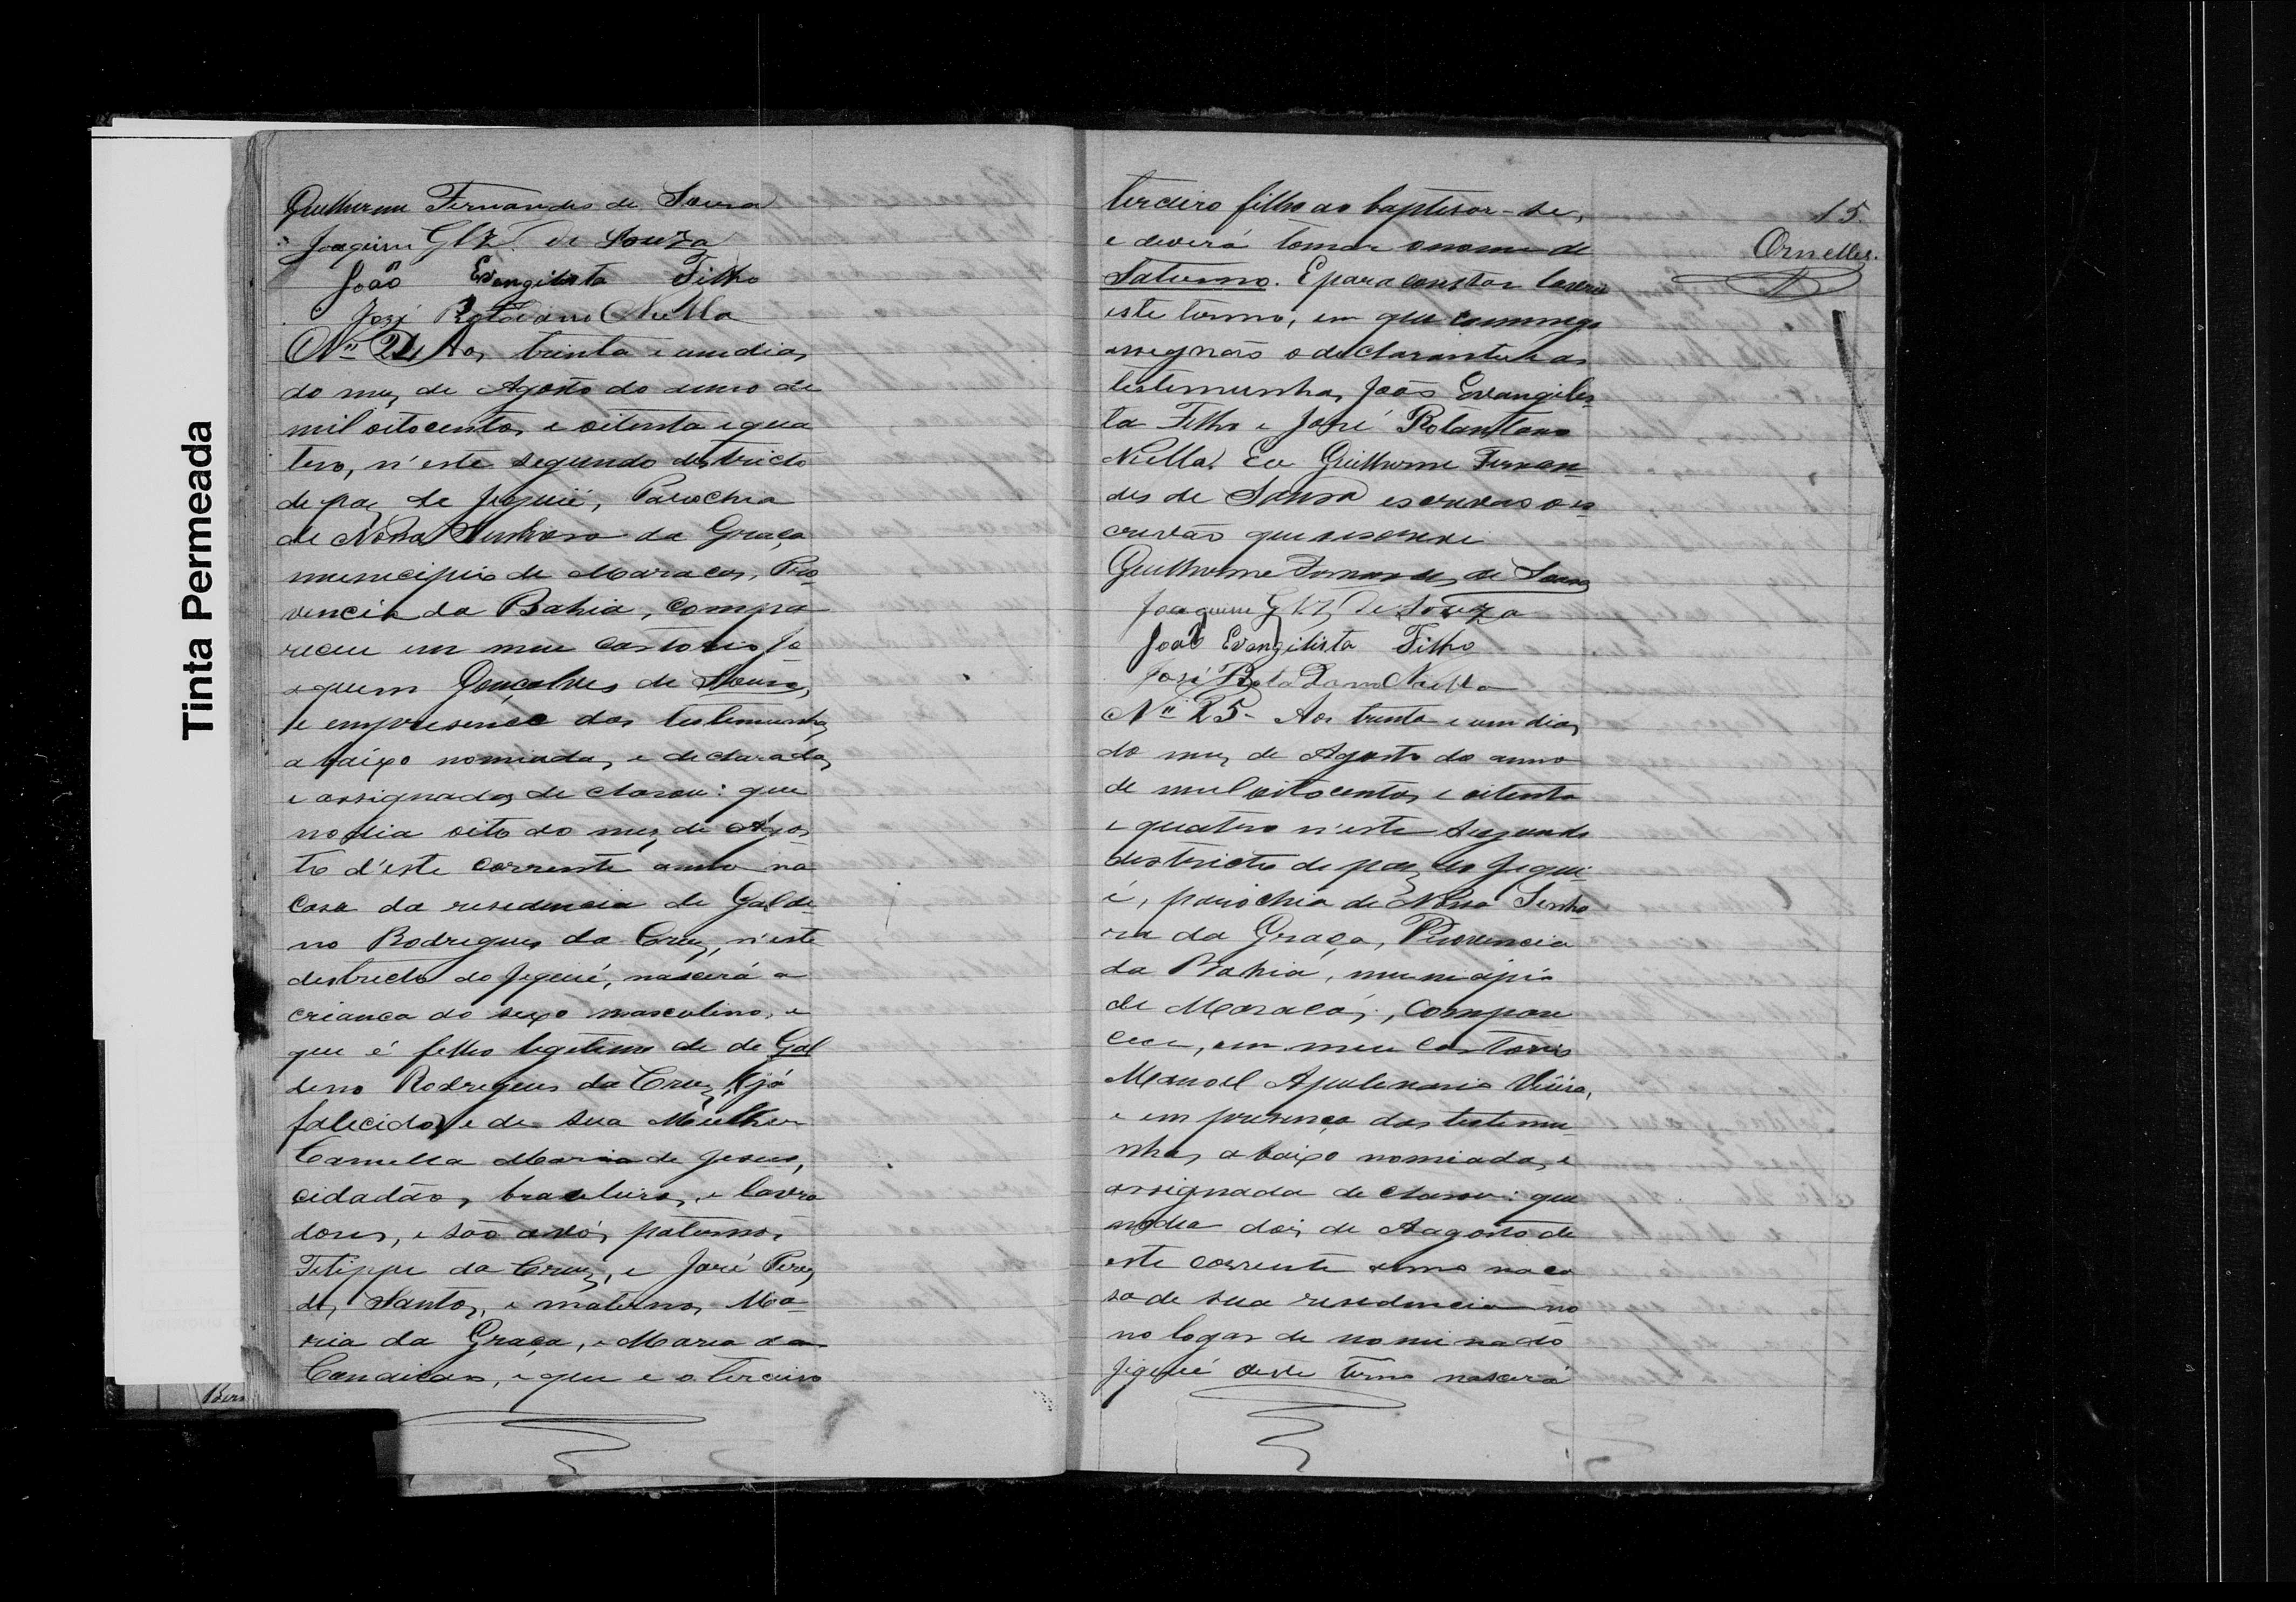 Tinta Permeada
Guilherme Fernandes de Souza
Joaquim Glz. de Souza
João Evangilista Filho
José Rotadano Nella
Nº 24 Aos trinta e um dias
do mez de Agosto do anno de
mil oitocentos e oitenta e qua
tro, n'este segundo districto
de paz de Jequié, Parochia
de Nossa Senhora da Graça
municipio de Maracas, Pro
vencia da Bahia, compa
receu em meu cartorio Jo
aquim Gonçalves de Souza,
e em presença das testemunhas
abaixo nomiadas, e declaradas
e assignadas declarou: que
no dia oito do mez de Agos
to d'este corrente anno na
casa da residencia de Galde
no Rodrigues da Cruz, n'este
destricto do Jequié, nascerá a
criança do sexo masculino, e
que é filho legitimo de de Gal
deno Rodrigues da Cruz, (já
falecido) e de sua Mulher
Camella Maria de Jesus,
cidadãos, braseleiros, e lavra
dores, e são avós paternos,
Filippe da Cruz, e José Perez
dos Santos, e maternos, Ma
ria da Graça, e Maria da
Conceicão, e que e o terceiro
terceiro filho ao baptisar-se,
e deverá tomar o nome de
Saturno. E para constar lavrei
este termo, em que commigo
assegnão o declarante e as
testemunhas João Evangeles
ta Filho e José Rotantano
Nella. Eu Guilherme Fernan
des de Sousa escrivão o es
crivão que
Guilherme Fernandes de Souza
Joaquim Glz de Souza
João Evangilista Filho
José Rota Dano Nella
Nº 25- Aos trinta e um dias
do mez de Agosto do anno
de mil oitocentos e oitenta
e quatro n'este segundo
destricto de paz do Jequi
é, parochia de Nossa Senho
ra da Graça, Provencia
da Bahia, municipio
de Maracás, compare
ceu, em meu cartorio
Manoel Apulenario Viera,
e em presença das testemu
nhas abaixo nomiadas, e
assignada declarou: que
no dia dois de Aagosto de
este corrente anno na ca
sa de sua residencia no
no logar de nominado
Jiquié deste termo nascerá
15
Ornellas.